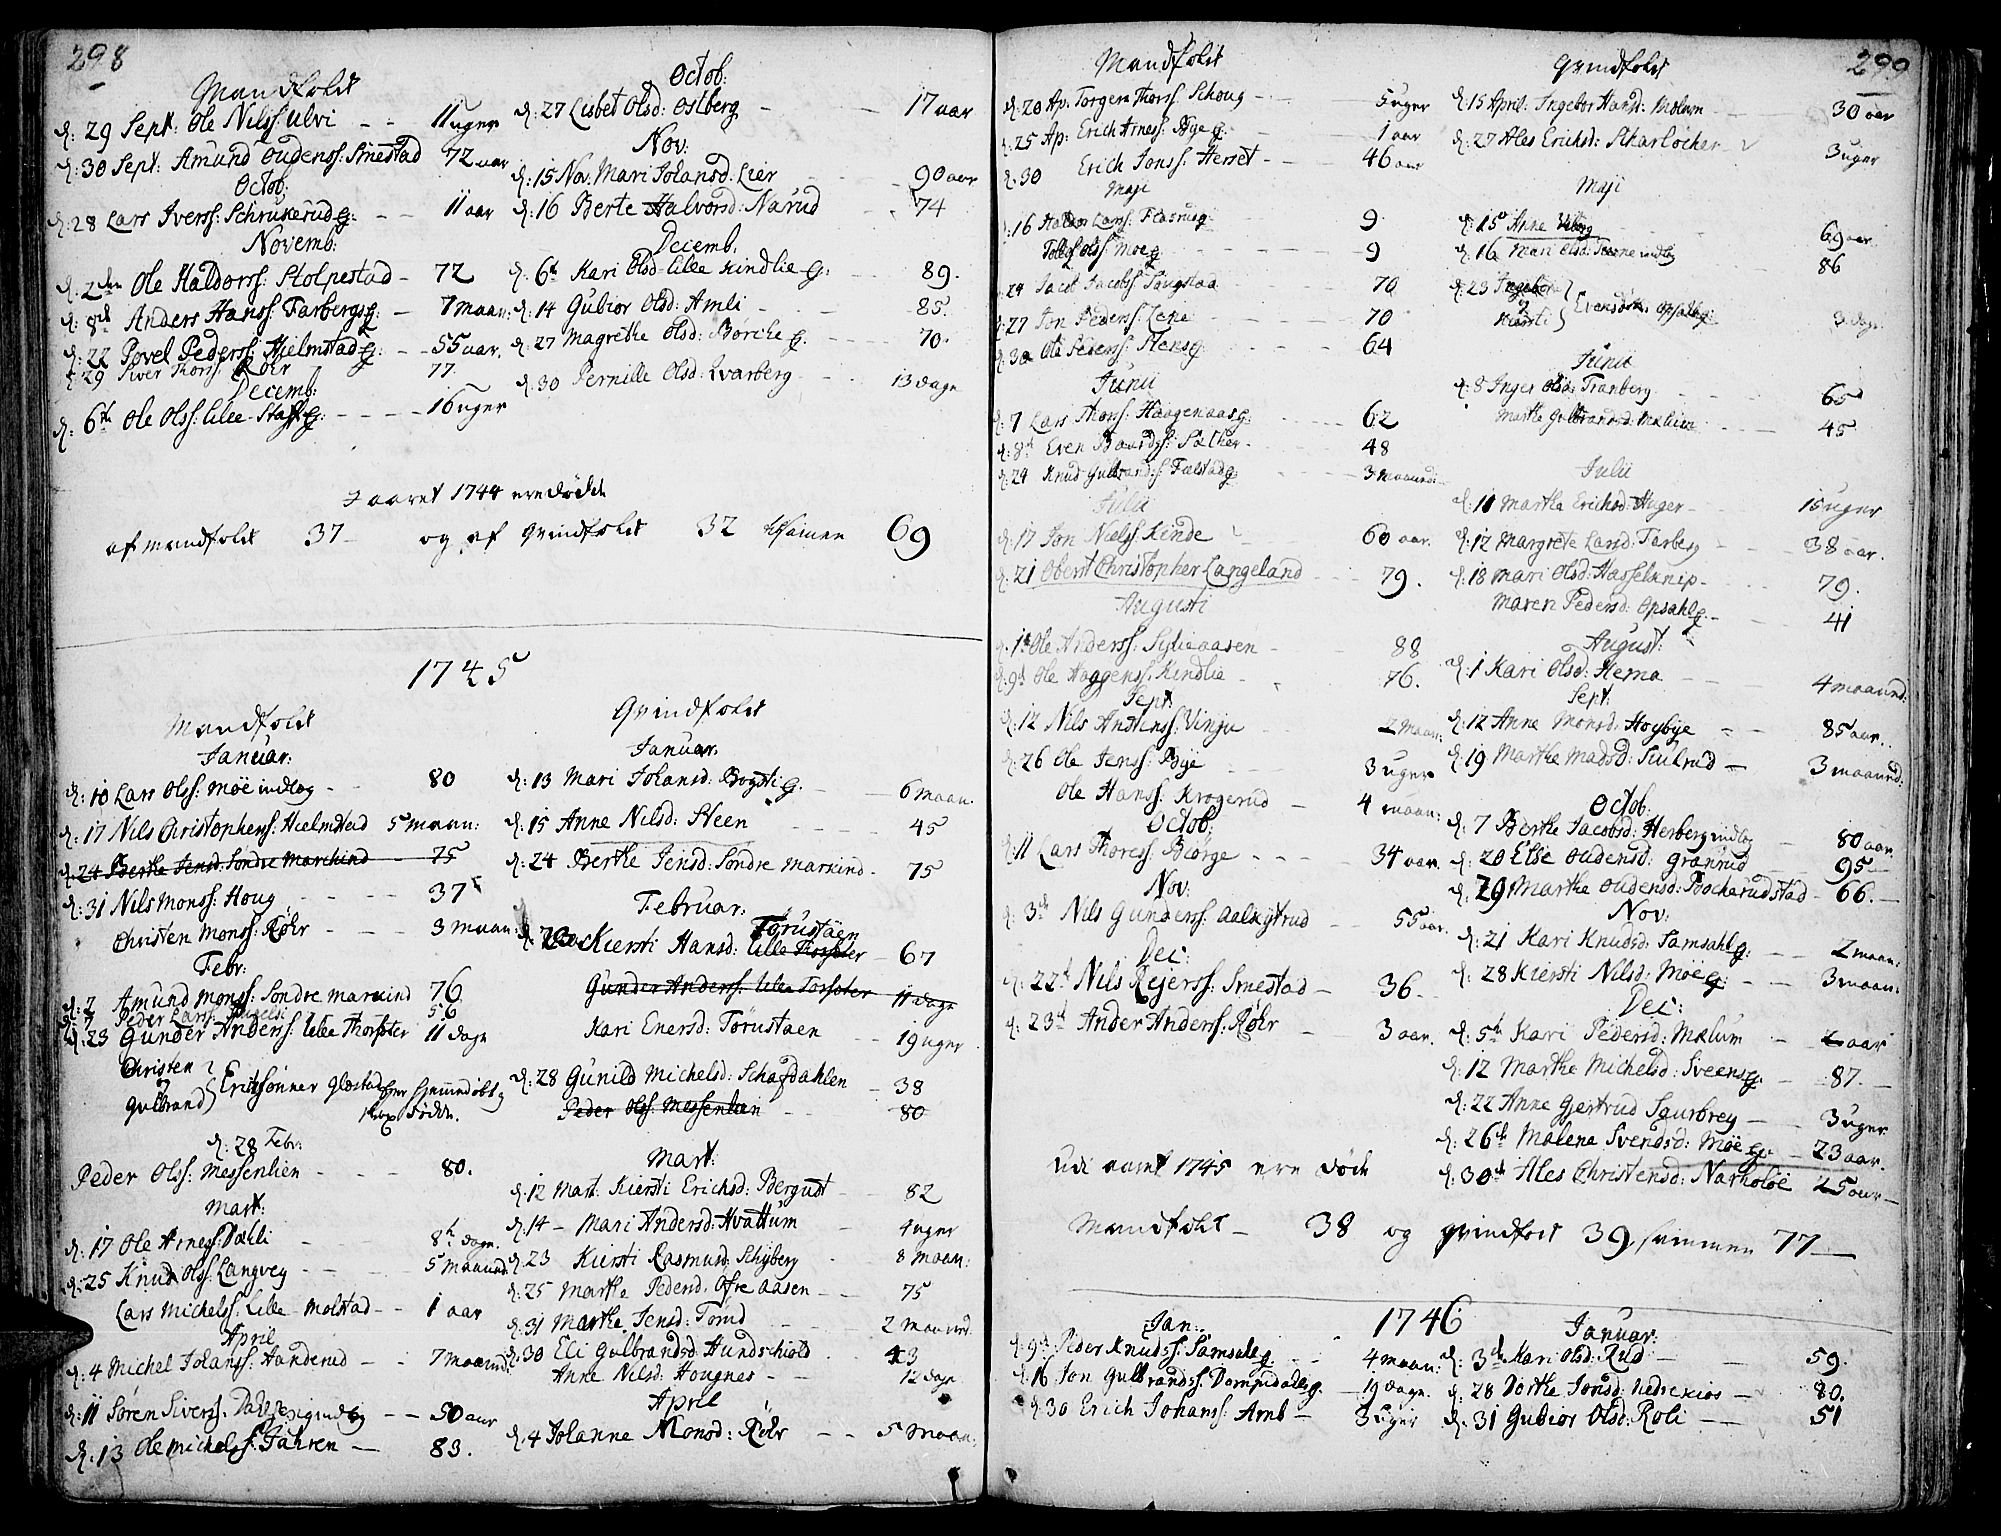 298
Mandfolct
d: 29 Sept: Ole Nilss: ulvi - - 11 uger
d: 30 Sept: Amund Oudenss: Smestad 72 aar
Octob:
d: 28 Lars Iverss: Schrukerud g: - - 11 aar
Novemb:
d: 2den Ole Haldorss: Stolpestad - 72
d: 8de Anders Hanss: Farbergsg: - 7 maan:
d: 22 Povel Pederss: Hielmstad g: - - 55 aar.
d: 29 Siver Thorss: Röhr 77
Decemb:
d: 6te Ole Olss: lille Staff g: - - - - 16 uger
Octob:
d: 27 Lisbet Olsd: Ostberg - - 17 aar
Nov:
d: 15 Nov: Mari Iohansd: Lier - 90 aar
d: 16 Berte Halvorsd: Narud - 74
Decemb.
d: 6te Kari Olsd: lille Kindlie g: - - 89.
d: 14 Gubior Olsd: Amli - - 85.
d: 27 Magrethe Olsd: Börche g. - - 70.
d: 30 Pernille Olsd: Qvarberg - - 13 dage
I aaret 1744 ere dödde
af mandfolct 37 - og af Qvindfolct 32 tilsamen 69
1745
Mandfolct
Januar:
d: 10 Lars Olss: Möe indlæg - - 80
d: 17 Nils Christophenss: Hielmstad 5 maan:
d: 24 Berthe Jensd: Sondre Marchind - 75
d: 31 Nils Monss: Houg - - - - 37
Christen Monss: Röhr - - - 3 maan:
Febr:
d: 2 Amund Monss: Sondre Markind 76
d: 7 Peder Larss: 56
d: 23 Gunder Anderss: lille Thorsæter 11 dage
Christen
og
Gulbrand } Erichsönner Glæstad hiemmedöbt og
döde.
d: 28 Febr:
Peder Olss: Messenlien - - - 80.
Mart:
d: 17 Ole Arness: Dæhli - - - 8te dage.
d: 25 Knud Olss: Langvey - - - 5 maaned
Lars Michelss: Lille Molstad - - 1 aar
April
d: 4 Michel Iohanss: Handerud - - 7 maaned:
d: 11 Sören Siverss: indlæg - - 50 aar
d: 13 Ole Michelss: Jahren - 83.
Qvindfolct
Januar:
d: 13 Mari Johansd: Bogsti g. - - 6 maan.
d: 15 Anne Nilsd: Steen - - 45
d: 24 Berthe Jensd: Sondre Markind - 75
Februar:
Torustaen
d: 23 Kiersti Hansd: lille Thorsæter - 67
Gunder Anderss: lille Torsæter 11 dage
Kari Enersd: Törustaen - - 19 uger
d: 28 Gunild Michelsd: Schafdahlen - 38
Peder Olss: Messenlien - - 80
Mart:
d: 12 Mart: Kiersti Erichsd: Bergust - 82
d: 14 - Mari Andersd: Hvattum - 4 uger
d: 23 Kiersti Rasmusd: Schyberg - 8 maan:
d: 25 Marthe Pedersd. Ofre aasen - - 75
d: 31 Marthe Jensd: Torud - - - 2 maaned
d: 30 Eli Gulbrandsd Hundschiold - 43
Anne Nilsd: Hougner - - 12 dage
April
d: 4 Johanne Monsd: Röhr - - 5 maan:
299
Mandfolct
d: 20 Ap: Torger Thorss: Schoug - - - 5 uger
d: 25 Ap: Erich Arness: Bye g: - 1 aar
d: 30 Erich Jonss: Herset - - - 46 aar
Maji
d: 16 Haldor Larss: g: - - 9
Olss: Moe g - - - 9
d: 24 Jacob Jacobss: Sougstad - - - 70
d: 27 Jon Pederss: Lena - - 70
d: 30 Ole Pederss: Stensg - - - 64
Junii
d: 7 Lars Thorss: Haagenaas g: - - - 62
d: 8de Even Baardss: Sæther - - 48
d: 24 Knud Gulbrandss: Fælstad g: - - - 3 maaned:
Julii
d: 17 Jon Nielss: Kinde - - 60 aar.
d: 21 Oberst Christopher Langeland - - 79.
Augusti
d: 1te Ole Anderss: Sislieaasen - - 88
d: 9de Ole Haagenss: Kindlie - - 76.
Sept
d: 12 Nils Andrenss: Vinju - - 2 maan:
d: 26 Ole Jenss: Bÿe - - - 3 uger
Ole Hanss: Krogerud - 4 maan:
Octob:
d: 11 Lars Thoress: Biörge - - - - 34 aar.
Nov:
d: 3de Nils Gunderss: Aalkystrud - - 55 aar.
Dec:
d: 22de Nils Rejerss: Smestad - 36.
d: 23de Ander Anderss: Röhr - - 3 aar.
Udi aaret 1745 ere döde
Mandfolct - 38 og qvindfolct 39, sammen 77 -
Qvindfolct
d: 15 April: Ingebor Hansd: Molum - - - 30 aar
d: 27 Ales Erichsd: Skarlöcher - 3 uger
Maji
d: 15 Anne Viberg - - 69 aar
d: 16 Mari Olsd: indlæg - - 86
d: 23 Ingebor
og
Kiersti } Evensdötre Opsahl g: 3 dage
Junii
d: 8 Inger Olsd: Tranberg - - - 65
Marthe Gulbrandsd: Mælum - - - 45
Julii
d: 11 Marthe Erichsd: Huger - - 15 uger
d: 12 Margrete Larsd: Farberg - - 38 aar.
d: 18 Mari Olsd: Hasselknip - - - 79.
Maren Pedersd: Opsahl g - - - 41
August:
d: 1 Kari Olsd: Hema - - - 4 maaned:
Sept:
d: 12 Anne Monsd: Hogbye - - 85 aar.
d: 19 Marthe Madsd: Siulrud - 3 maaned:
Octob:
d: 7 Berthe Jacobsd: Herberg indlæg - 80 aar.
d: 20 Else Oudensd: Granrud - 95 -
d: 29 Marthe Oudensd: Bocherudstad - 66. -
Nov:
d: 21 Kari Knudsd: Samsahl g: - - 2 maan:
d: 28 Kiersti Nilsd: Möe g: - - 3 maan:
Dec:
d: 5te Kari Pedersd: Mælum - - 2 aar
d: 12 Marthe Michelsd: Sveens g: - 87. -
d: 22 Anne Giertrud Sgurbrey - - 3 uger
d: 26te Malena Svendsd: Möe g: - 23 aar.
d: 30te Ales Christensd: Narholöe 25 aar -
1746
Jan:
d: 9de Peder Knudss: Samsahl g - - 4 maan:
d: 16 Jon Gulbrandss: Dompidal g. - 19 dage.
d: 30 Erich Johanss: Arnb - 3 uger
Januar:
d: 3de Kari Olsd: Rud - - 59.
d: 28 Dorthe Jonsd: Nedrekios - 80.
d: 31 Gubior Olsd: Roli - - 51